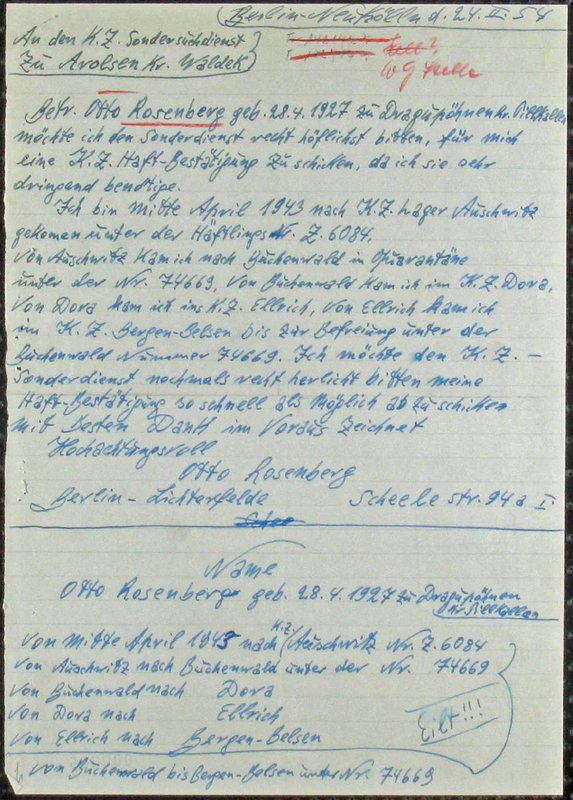 Berlin-Neukölln d. 24. II. 54
An den K.Z. Sondersuchdienst
Zu Arolsen Kr. Waldek
Betr. Otto Rosenberg geb. 28.4.1927 zu Dragupöhnen Kr. Pillkallen
möchte ich den Sonderdienst recht höflichst bitten, für mich
eine K.Z. Haft-Bestätigung zu schicken, da ich sie sehr
dringand benötige.
Ich bin mitte April 1943 nach K.Z. Lager Auschwitz
gekomen unter der Häftlings Nr. Z. 6084.
von Auschwitz kam ich nach Buchenwald in Quarantäne
unter der Nr. 74669, von Buchenwald kam ich im K.Z. Dora.
von Dora kam ich ins K.Z. Ellrich, von Ellrich kam ich
im K.Z. Bergen-Belsen bis zur Befreiung unter der
Buchenwald Nummer 74669. Ich möchte den K.Z.-
Sonderdienst nochmals recht herlicht bitten meine
Haft-Bestätigung so schnell als möglich ab zu schicken
mit besten Dank im Voraus zeichnet
Hochachtungsvoll
Otto Rosenberg
Berlin-Lichterfelde Scheele str. 94a I.
Name
Otto Rosenberg geb. 28.4.1927 zu Dragupöhnen
Kr. Pillkallen
von mitte April 1943 nach K.Z. Auschwitz Nr. Z. 6084
von Auschwitz nach Buchenwald unter der Nr. 74669
von Buchenwald nach Dora
von Dora nach Ellrich
von Ellrich nach Bergen-Belsen
Eilt!!!
von Buchenwald bis Bergen-Belsen unter Nr. 74669